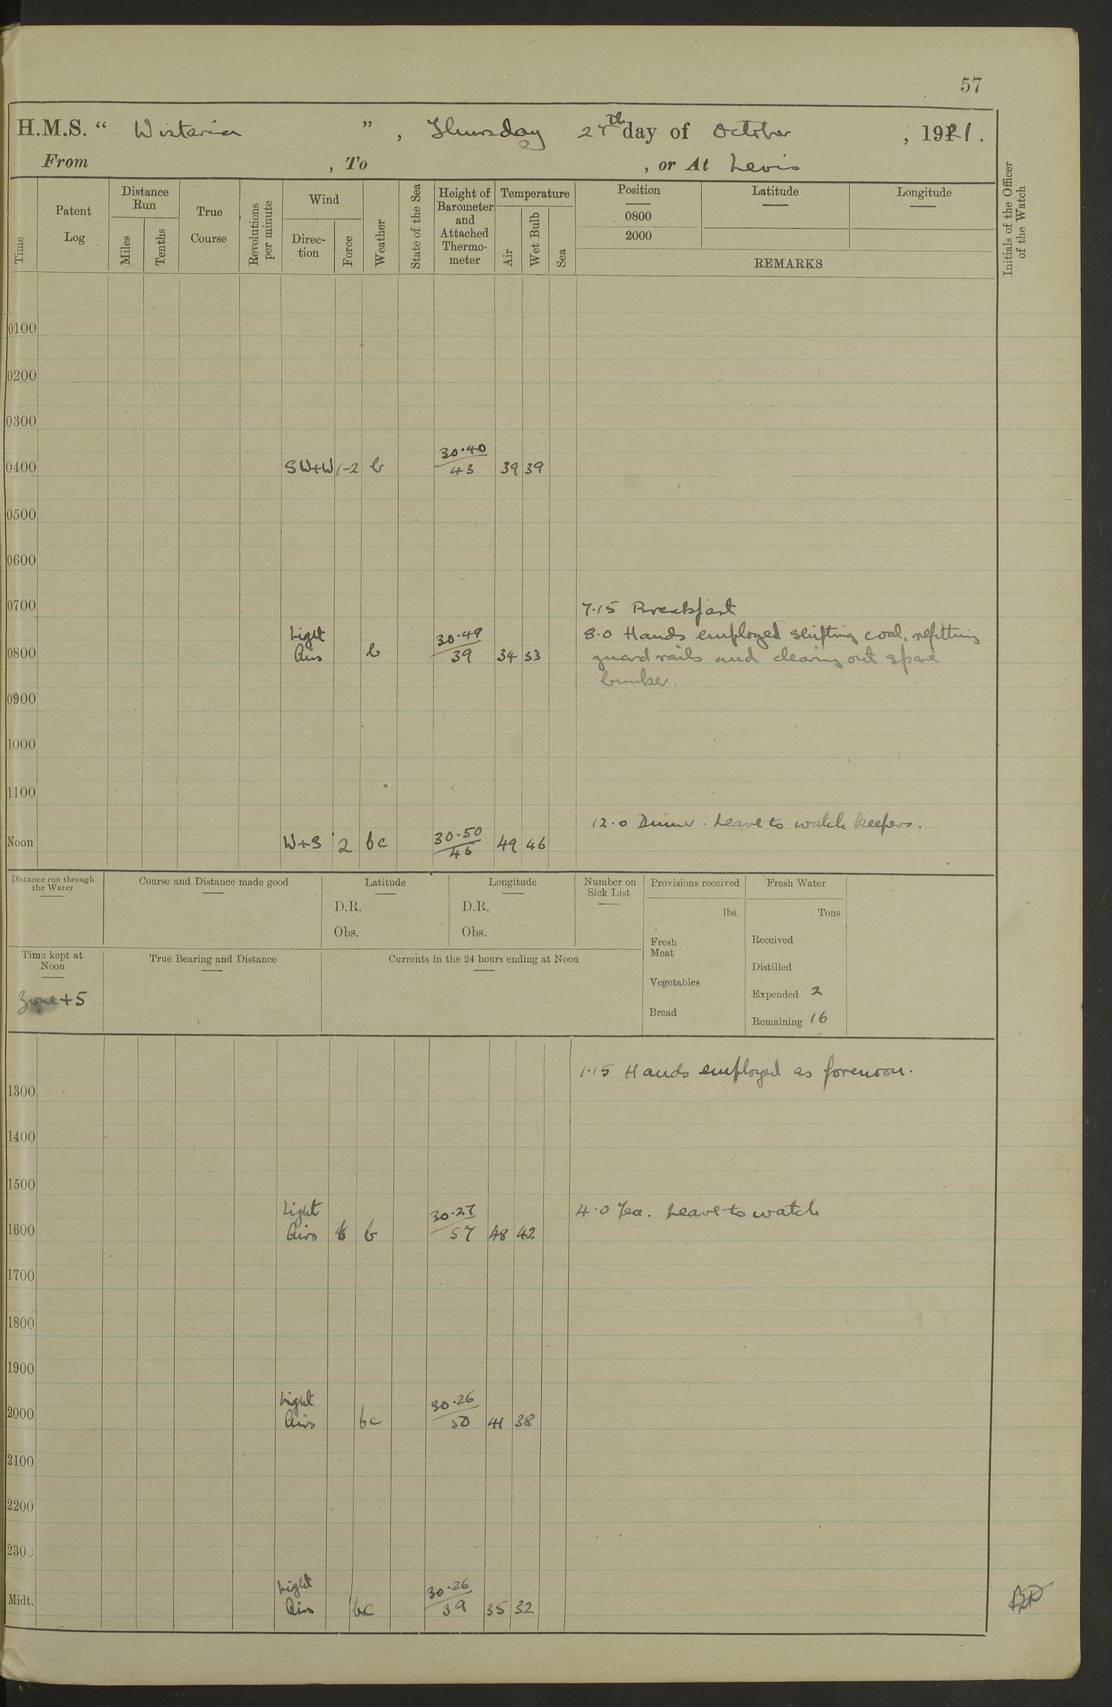 57
H.M.S. “ Wistaria ” , Thursday 27th day of October , 1921.
From , To , or At Levis
Time
Patent Log
Distance Run
Miles
Tenths
True Course
Revolutions per minute
Wind
Direction
Force
Weather
State of the Sea
Height of Barometer and Attached Thermometer
Temperature
Air
Wet Bulb
Sea
Position
0800
2000
Latitude
Longitude
REMARKS
Initials of the Officer of the Watch
0100
0200
0300
0400 SW+W 1-2 b 30.40/43 39 39
0500
0600
0700 7.15 Breakfast
0800 Light Airs b 30.49/39 34 33
8.0 Hands employed shifting coal, refitting
guard rails and clearing out spare
bunker.
0900
1000
1100
12.0 Dinner. Leave to watch keepers.
Noon W+S 2 bc 30.50/46 49 46
Distance run through the Water
Course and Distance made good
Latitude
D.R.
Obs.
Longitude
D.R.
Obs.
Number on Sick List
Provisions received
lbs.
Fresh Meat
Vegetables
Bread
Fresh Water
Tons
Received
Distilled
Expended 2
Remaining 16
Time kept at Noon
Zone +5
True Bearing and Distance
Currents in the 24 hours ending at Noon
1.15 Hands employed as forenoon.
1300
1400
1500
4.0 Tea. Leave to watch
1600 Light Airs b 30.27/57 48 42
1700
1800
1900
2000 Light Airs bc 30.26/50 41 38
2100
2200
2300
Midt. Light Airs bc 30.26/39 35 32